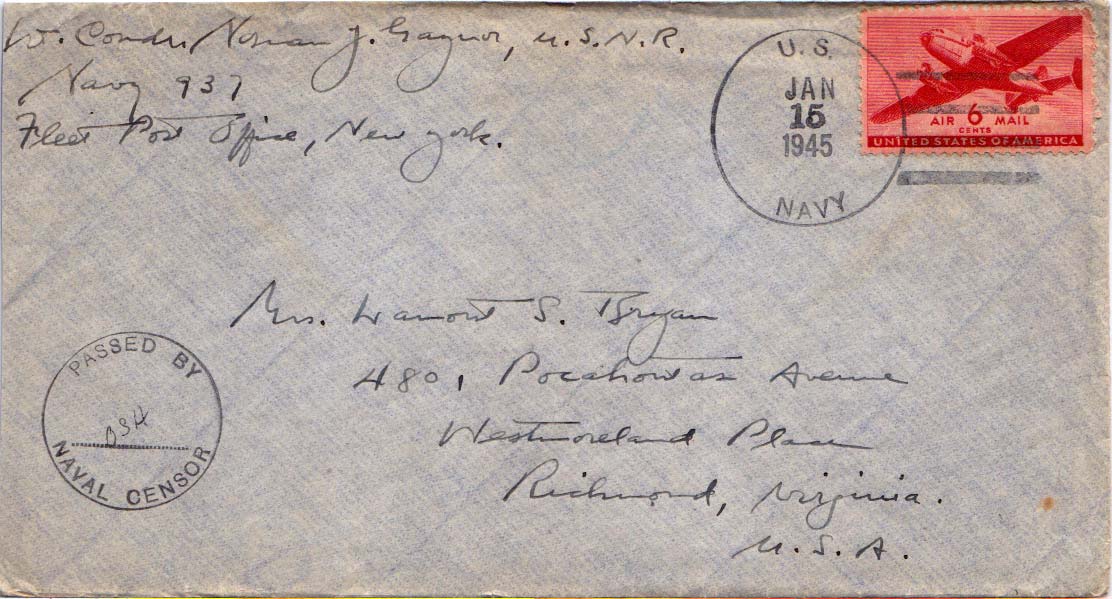 Lt. Comdr. Norman J. Gaynor, U.S.N.R.
Navy 937
Fleet Post Office, New York.
U.S.
JAN
15
1945
NAVY
AIR 6 MAIL
CENTS
UNITED STATES OF AMERICA
Mrs. Lamont S. Bryan
4801 Pocahontas Avenue
Westmoreland Place
Richmond, Virginia.
U.S.A.
PASSED BY
NAVAL CENSOR